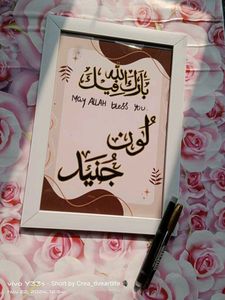 بارك الله فيك
May ALLAH bless you.
لُون
جُنَيد
vivo Y33s - Short by Crea_thrartlife
Nov 22, 2024, 12:34